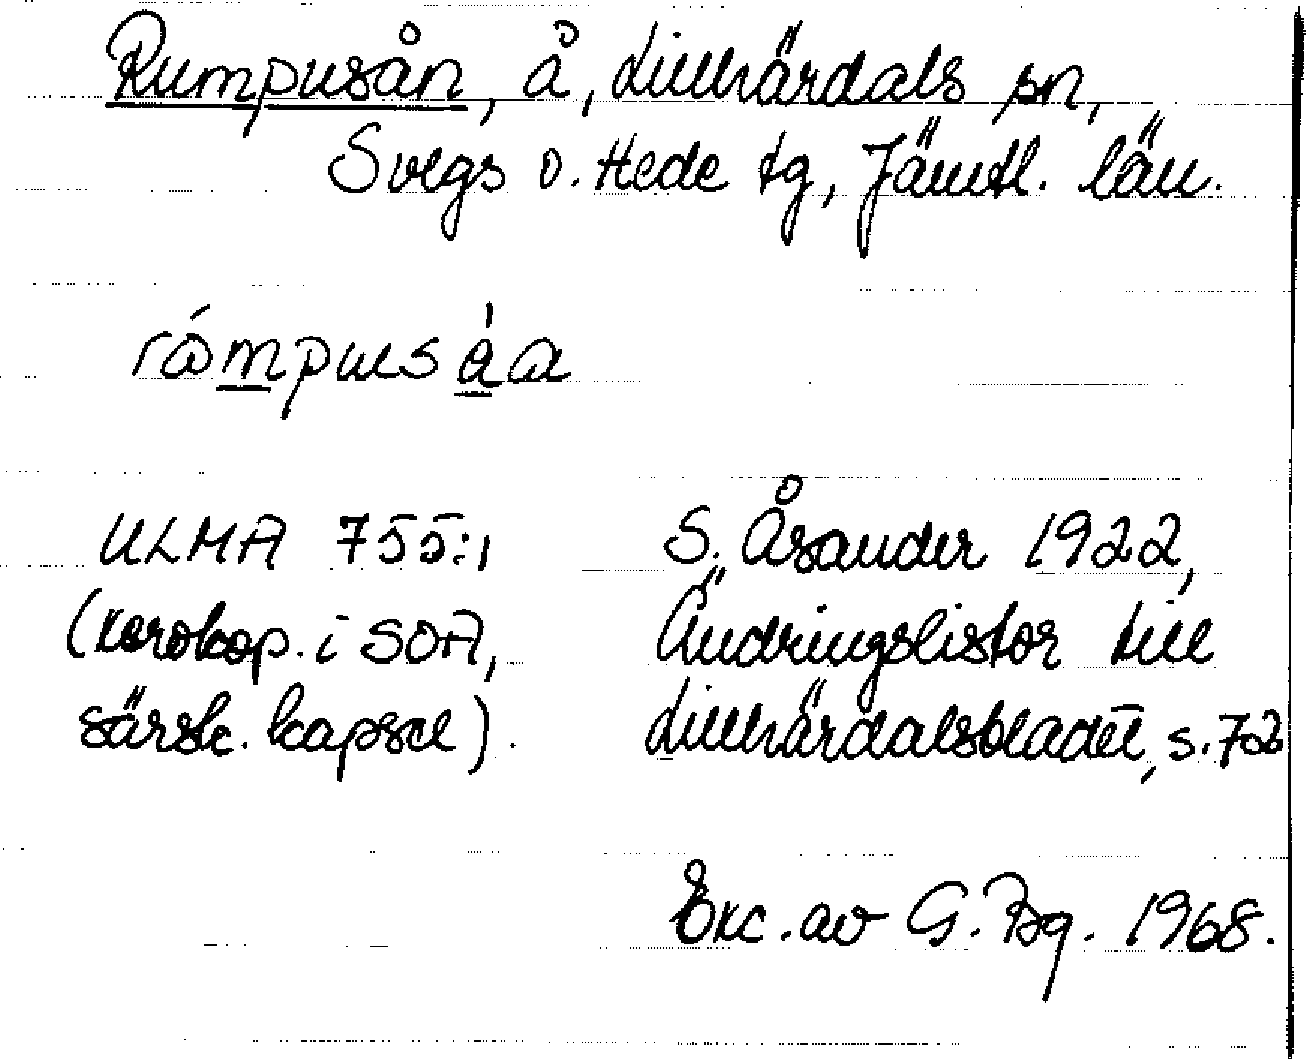 Rumpusån, å, Lillhärdals sn,
Svegs o. Hede tg, Jämtl. län.
rómpusáa
ULMA 755:1
(xerokop. i SOA,
särsk. kapsel).
S. Åsander 1922,
Ändringslistor till
Lillhärdalsbladet, s. 72
Exc. av G. Bg. 1968.